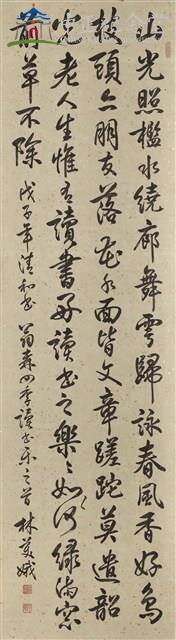 山光照檻水繞廊舞雩歸詠春風香好鳥
枝頭亦朋友落花水面皆文章蹉跎莫遣韶
光老人生惟有讀書好讀書之樂樂如何綠滿窓
前草不除 戊子年清和書 翁森四季讀書樂之首 林美娥